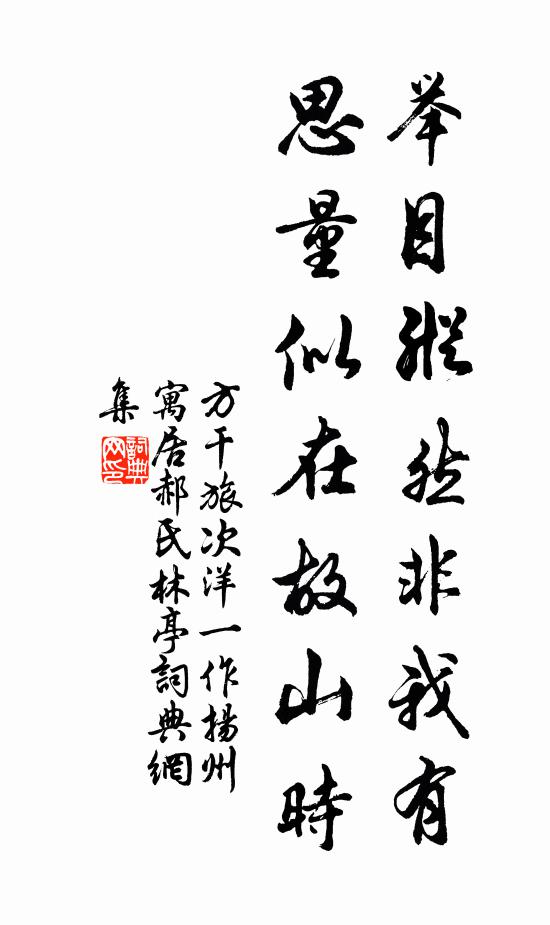 举目縱然非我有
思量似在故山時
方干旅次洋一作揚州
寓居郝氏林亭詞典網
集
詞典网印